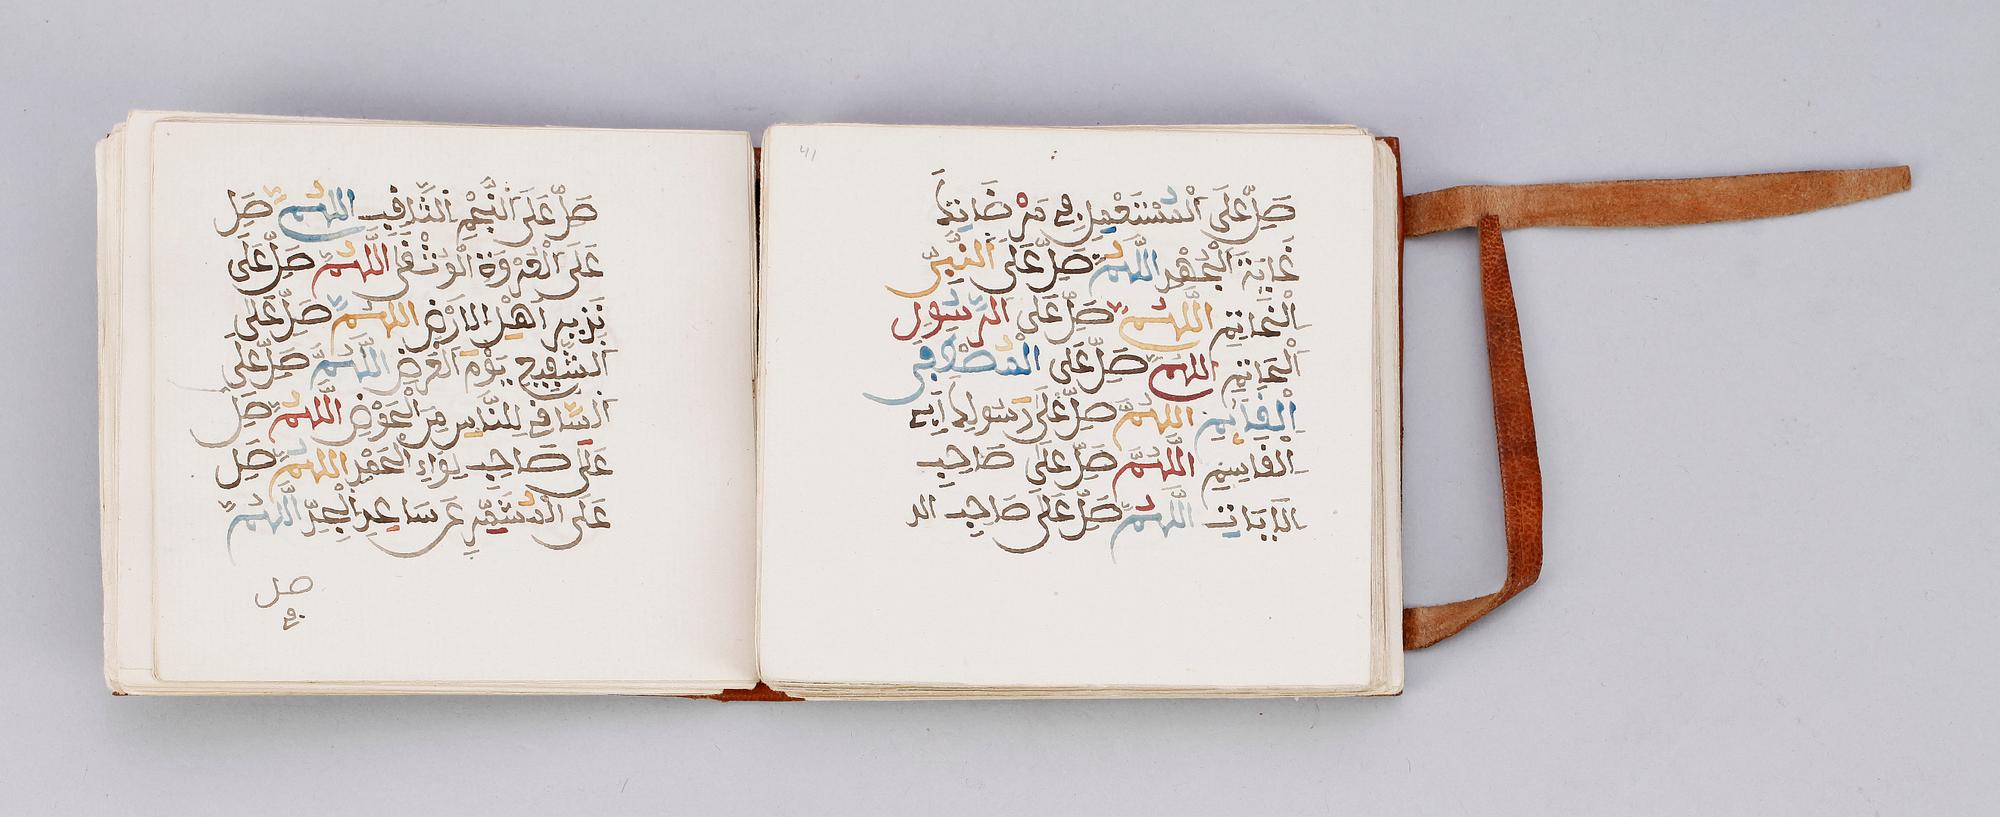 41
صَلِّ عَلَى الْمُسْتَعْمِلِ فِي مَرْضَاتِكَ
غَايَةَ الْجُهْدِ اللَّهُمَّ صَلِّ عَلَى النَّبِيِّ
الْخَاتِمِ اللَّهُمَّ صَلِّ عَلَى الرَّسُولِ
الْخَاتِمِ اللَّهُمَّ صَلِّ عَلَى الْمُصْطَفَى
الْقَائِمِ اللَّهُمَّ صَلِّ عَلَى رَسُولِكَ أَبِي
الْقَاسِمِ اللَّهُمَّ صَلِّ عَلَى صَاحِبِ
الْآيَاتِ اللَّهُمَّ صَلِّ عَلَى صَاحِبِ الد
صَلِّ عَلَى النَّجْمِ الثَّاقِبِ اللَّهُمَّ صَلِّ
عَلَى الْعُرْوَةِ الْوُثْقَى اللَّهُمَّ صَلِّ عَلَى
نَذِيرِ أَهْلِ الْأَرْضِ اللَّهُمَّ صَلِّ عَلَى
الشَّفِيعِ يَوْمَ الْعَرْضِ اللَّهُمَّ صَلِّ عَلَى
السَّاقِي لِلنَّاسِ مِنَ الْحَوْضِ اللَّهُمَّ صَلِّ
عَلَى صَاحِبِ لِوَاءِ الْحَمْدِ اللَّهُمَّ صَلِّ
عَلَى الْمُشَمِّرِ عَنْ سَاعِدِ الْجِدِّ اللَّهُمَّ
صل